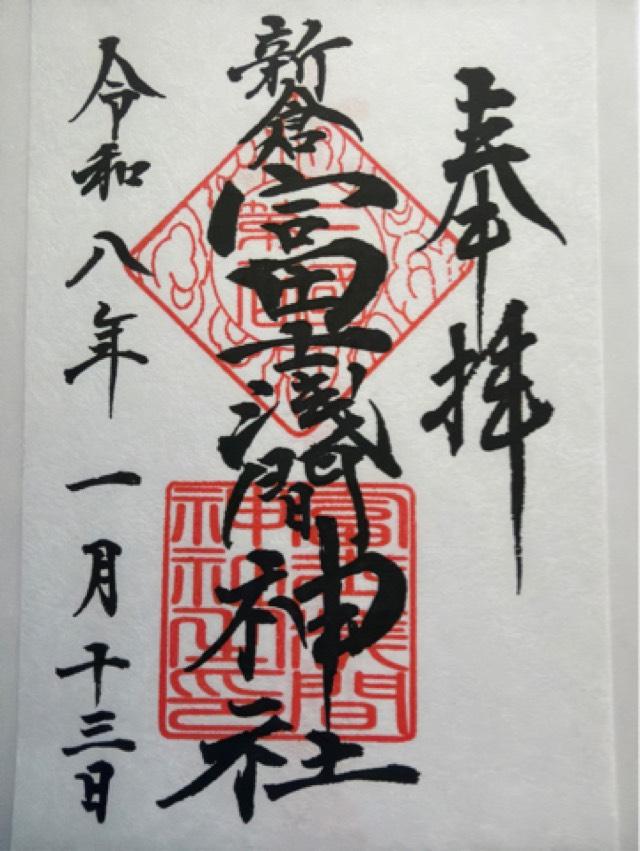 奉拝
新倉富士浅間神社
令和八年一月十三日
富士浅間
神社之印